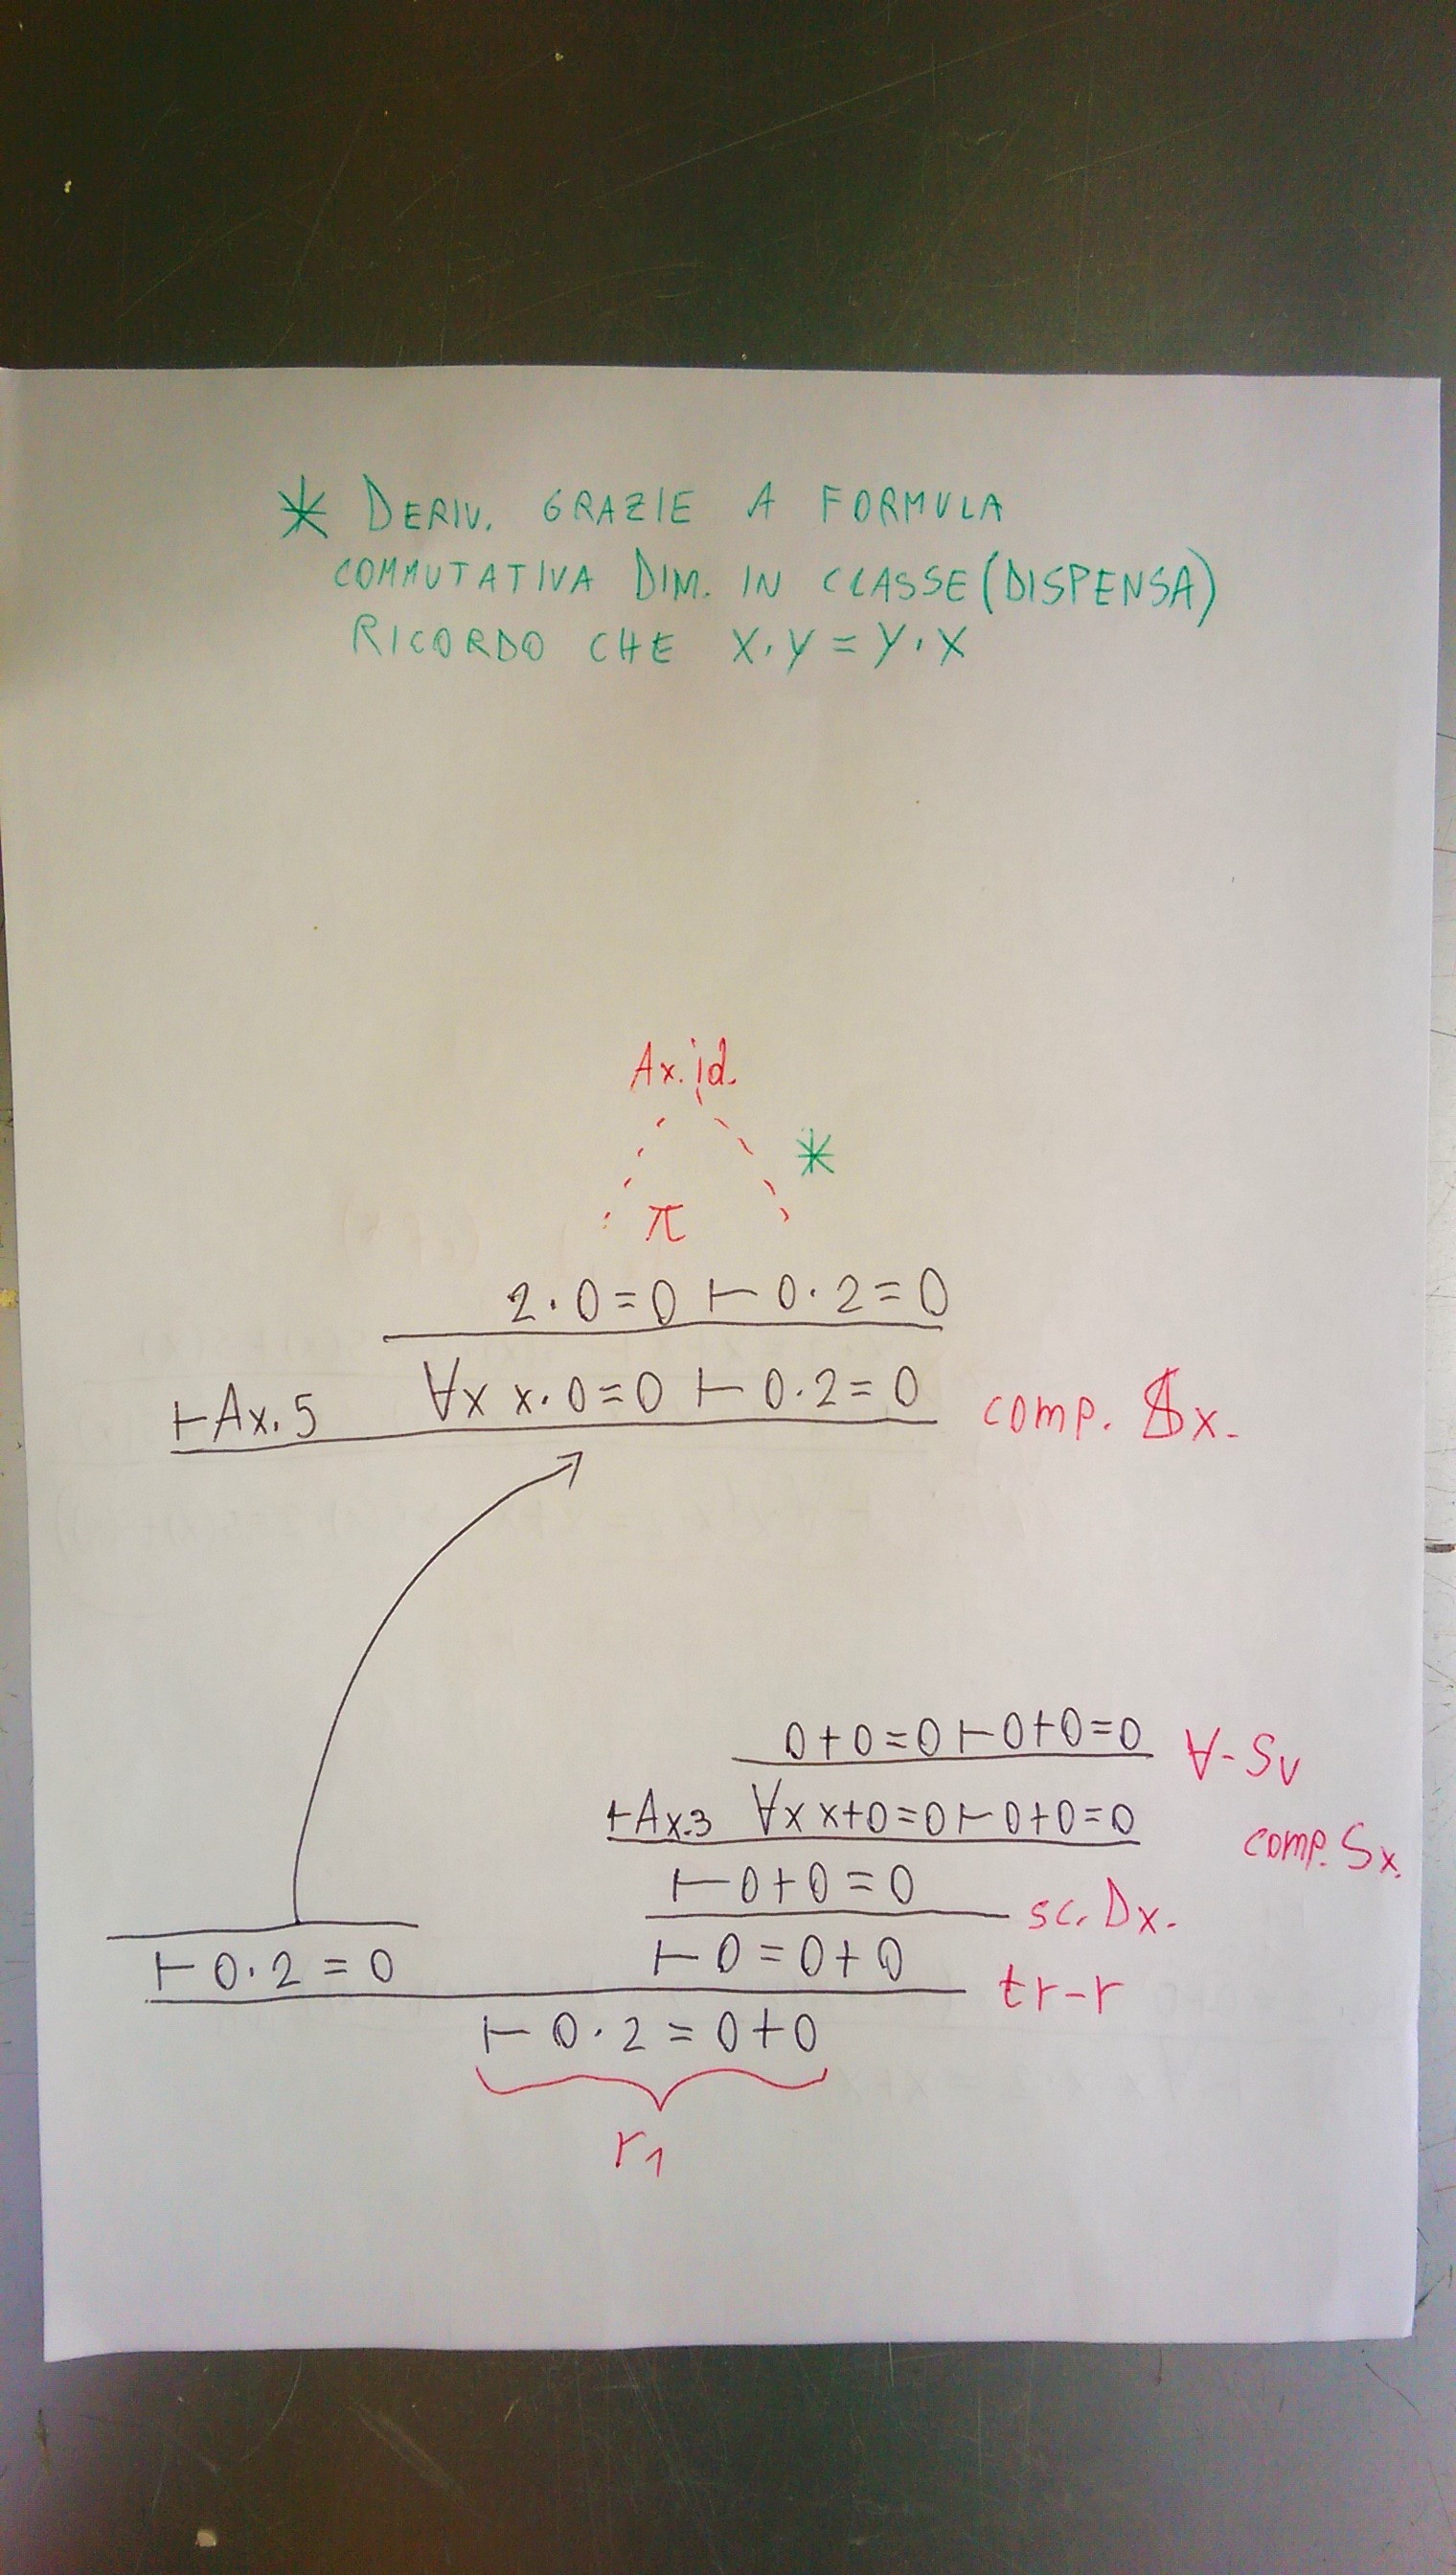 * DERIV. GRAZIE A FORMULA
COMMUTATIVA DIM. IN CLASSE (DISPENSA)
RICORDO CHE X·Y = Y·X
Ax. id.
*
π
2·0=0 ⊢ 0·2=0
⊢Ax.5 ∀x x·0=0 ⊢ 0·2=0 comp. Sx.
0+0=0 ⊢ 0+0=0 ∀-Sv
⊢Ax.3 ∀x x+0=0 ⊢ 0+0=0 comp. Sx.
⊢ 0+0=0
sc. Dx.
⊢ 0·2=0 ⊢ 0=0+0
tr-r
⊢ 0·2=0+0
r1